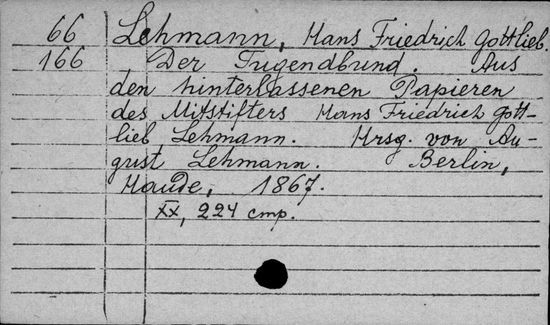 66 Lehmann, Hans Friedrich Gottlieb.
166 Der Tugendbund. Aus
den hinterlassenen Papieren
des Mitstifters Hans Friedrich Gott-
lieb Lehmann. Hrsg. von Au-
gust Lehmann. Berlin,
Haude, 1867.
XX, 224 стр.